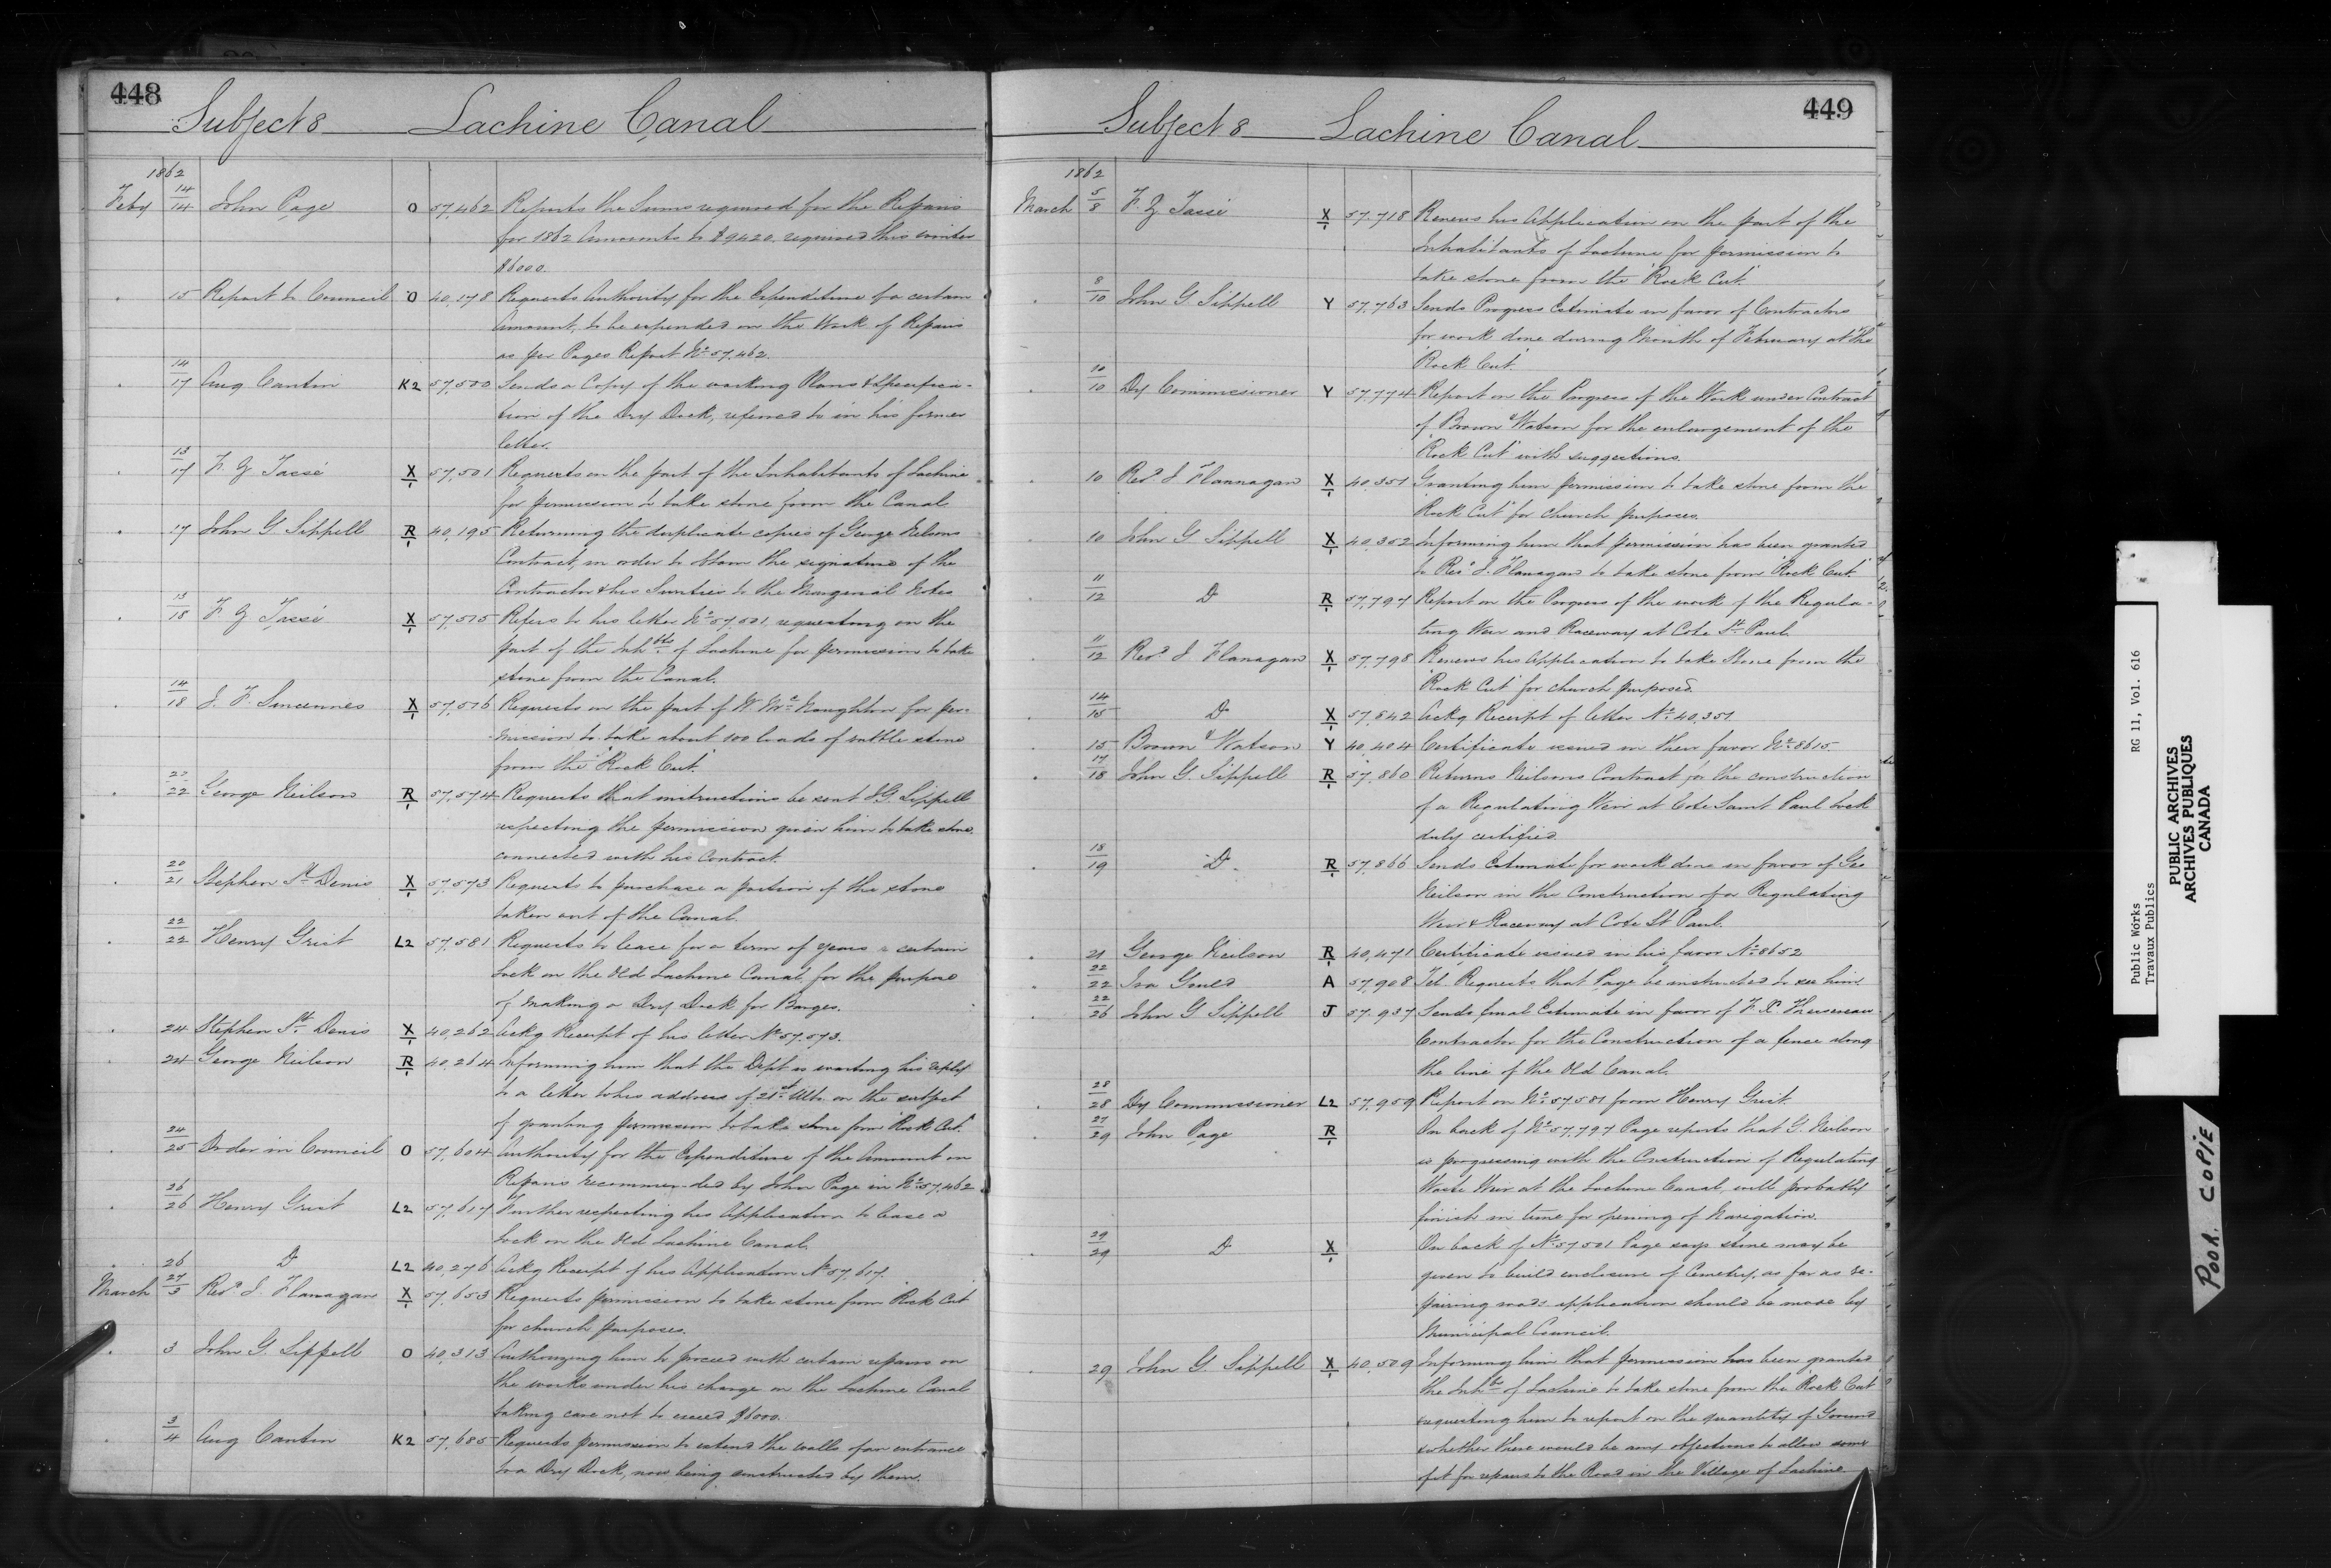 448
Subject 8 Lachine Canal
1862
Feby 14/14 John Page O 57,462 Reports the Sums required for the Repairs
for 1862 Amounts to $9420. required this winter
$6000.
15 Report to Council O 40,178 Requests Authority for the Expenditure of a certain
Amount, to be expended on the Work of Repairs
as per Pages Report No 57,462.
14/17 Aug Cantin K2 57,500 Sends a Copy of the working Plans & Specifica-
tion of the Dry Dock, referred to in his former
letter.
13/17 F. Z Tassé X/1 57,501 Requests on the part of the Inhabitants of Lachine
for permission to take stone from the Canal
17 John G Sippell R/1 40,195 Returning the duplicate copies of George Neilsons
Contract, in order to obtain the signature of the
Contractor & his Sureties to the Marginal Notes
13/18 F. Z Tassé X/1 57,515 Refers to his letter No 57,501, requesting on the
part of the Inhbts of Lachine for permission to take
stone from the Canal.
14/18 J. F. Sincennes X/1 57,516 Requests on the part of W. McNaughton for per-
mission to take about 100 loads of rubble stone
from the "Rock Cut."
22 George Neilson R/1 57,574 Requests that instructions be sent J G. Sippell
respecting the permission given him to take stone
connected with his Contract.
20/21 Stephen St Denis X/1 57,573 Requests to purchase a portion of the stone
taken out of the Canal.
22/22 Henry Grist L2 57,581 Requests to lease for a term of years a certain
Lock on the Old Lachine Canal, for the purpose
of making a Dry Dock for Barges.
24 Stephen St Denis X/1 40,262 Ackg Receipt of his letter No 57,573.
24 George Neilson R/1 40,264 Informing him that the Dept is waiting his reply
to a letter to his address of 21st Ulto. on the subject
of granting permission to take stone from "Rock Cut."
24/25 Order in Council O 57,604 Authority for the Expenditure of the Amount on
Repairs recommended by John Page in No 57,462
26/26 Henry Grist L2 57,617 Further respecting his Application to lease a
Lock on the Old Lachine Canal.
26 Do L2 40,276 Ackg Receipt of his Application No 57,617.
March 27/3 Revd J. Flanagan X/1 57,653 Requests permission to take stone from Rock Cut
for church purposes.
3 John G. Sippell O 40,313 Authorizing him to proceed with certain repairs on
the works under his charge on the Lachine Canal
taking care not to exceed $6000.
3/4 Aug Cantin K2 57,685 Requests permission to extend the walls of an entrance
to a Dry Dock, now being constructed by them.
449
Subject 8 Lachine Canal
1862
March 5/8 F. Z Tassé X/1 57,718 Renews his Application on the part of the
Inhabitants of Lachine for permission to
take stone from the "Rock Cut."
8/10 John G Sippell Y 57,763 Sends Progress Estimate in favor of Contractors
for work done during Month of February at "the
Rock Cut"
10/10 Dy Commissioner Y 57,774 Report on the Progress of the Work under Contract
of Brown & Watson for the enlargement of the
"Rock Cut" with suggestions.
10 Revd J Flannagan X/1 40,351 Granting him permission to take stone from the
"Rock Cut" for church purposes.
10 John G Sippell X/1 40,352 Informing him that permission has been granted
to Revd J. Flanagan to take stone from "Rock Cut."
11/12 Do R/1 57,797 Report on the Progress of the work of the Regula-
ting Weir and Raceway at Cote St Paul.
11/12 Revd J Flanagan X/1 57,798 Renews his Application to take Stone from the
"Rock Cut" for church purposes.
14/15 Do X/1 57,842 Ackg Receipt of letter No 40,351
15 Brown & Watson Y 40,404 Certificate issued in their favor No 8615
17/18 John G. Sippell R/1 57,860 Returns Neilsons Contract for the construction
of a Regulating Weir at Cote Saint Paul Lock
duly certified
18/19 Do. R/1 57,866 Sends Estimate for work done in favor of Geo
Neilson in the Construction of a Regulating
Weir & Raceway at Cote St Paul.
21 George Neilson R/1 40,471 Certificate issued in his favor No 8652
22/22 Ira Gould A 57,908 Tel. Requests that Page be instructed to see him
22/26 John G Sippell J 57,937 Sends final Estimate in favor of F. X.
Contractor for the Construction of a fence along
the line of the Old Canal.
28/28 Dy Commissioner L2 57,959 Report on No 57581 from Henry Grist.
27/29 John Page R/1 On back of No 57,797 Page reports that G. Neilson
is progressing with the Construction of Regulating
Waste Weir at the Lachine Canal, will probably
finish in time for opening of Navigation.
29/29 Do X/1 On back of No 57501 Page says stone may be
given to build enclosure of Cemetry, as far as re-
pairing roads application should be made by
Municipal Council.
29 John G. Sippell X/1 40,509 Informing him that permission has been granted
the Inhbts of Lachine to take stone from the Rock Cut
requesting him to report on the quantity of Ground
& whether there would be any objections to allow some
for repairs to the Road in the Village of Lachine
Public Works RG 11, Vol. 616
Travaux Publics
PUBLIC ARCHIVES
ARCHIVES PUBLIQUES
CANADA
POOR COPIE